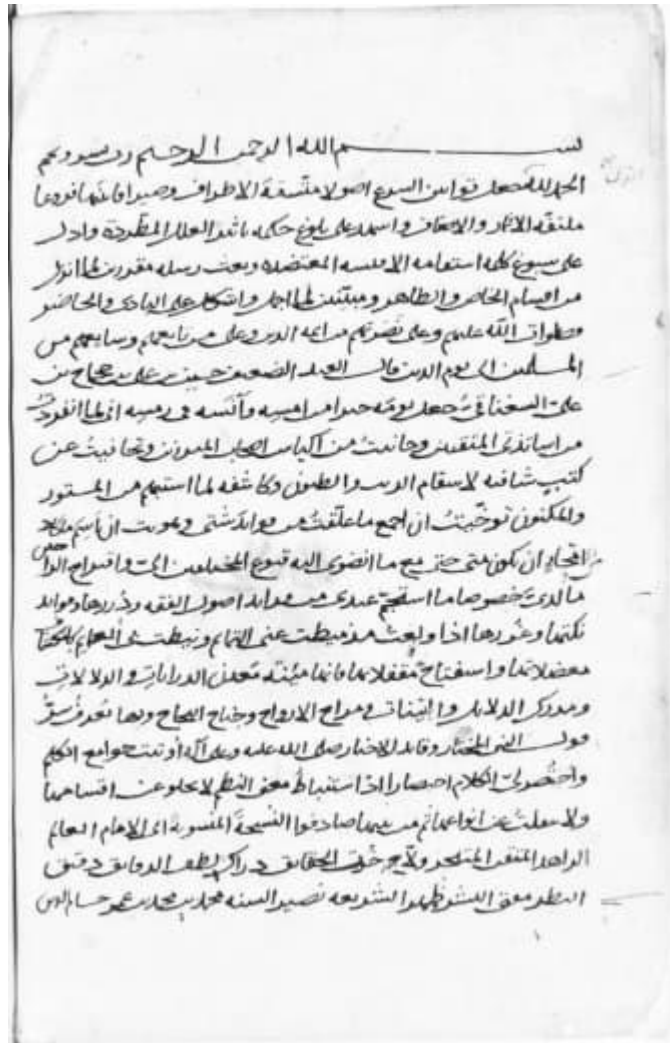 بسم الله الرحمن الرحيم رب يسر وتمم
الحمد لله جعل قوانين الشرع اصولا متسقة الاطراف وصير افانينها فروعا
ملتفة الاثمار والاصناف واستدل على بلوغ حكمه باثار العلل المطردة وادل
على سبوغ كلمه استقامة الاقيسه المعتضده وبعث رسله مقررين لما انزل
من اقسام الخاص والظاهر ومبينين لما اجمل واشكل على البادى والحاضر
وصلوات الله عليهم وعلى من نصرتهم من ائمة الدين وعلى من تابعهم وشايعهم من
المسلمين الى يوم الدين قال العبد الضعيف حسين بن على بن حجاج بن
على السغناقى جعل يومه خيرا من امسه وآنسه فى رمسه انى لما انفردت
من اساتذتى المتقنين وجانبت من اكياس اصحاب المبرزين وتجافيت عن
كتب شافيه لاسقام الريب والظنون وكاشفه لما استبهم من المستور
والمكنون توخيت ان اجمع ما علقت من فوايد شتى
ان يكون متى حتى مع ما انضوى اليه المختلفين الى واقتراح
ما لدى خصوصا ما استجم عندى من فوايد اصول الفقه ودررها وفوايد
نكتها وغررها اذا ولعت مذ ميطت عنى التمايم ونيطت بى العمايم
معضلاتها واستفتاح مقفلاتها فانها معدن الدرايات والدلالات
ومدرك الدلايل والبينات وجناح النجاح وبها تعرف سر
قول النبى المختار وقايد الاخيار صلى الله عليه وعلى آله أوتيت جوامع الكلم
واختصر لى الكلام اختصارا اذ استنباط معنى النظم لا يخلو عن اقسامها
ولا عن انواعها ثم من بينها صادفوا النسخة المنسوبة الى الامام العالم
الزاهد المتقن المتبحر ولاج الحقايق دراك لطف الدقايق دقيق
النظر ظهير الشريعه نصير السنه محمد بن محمد بن عمر حسام الدين